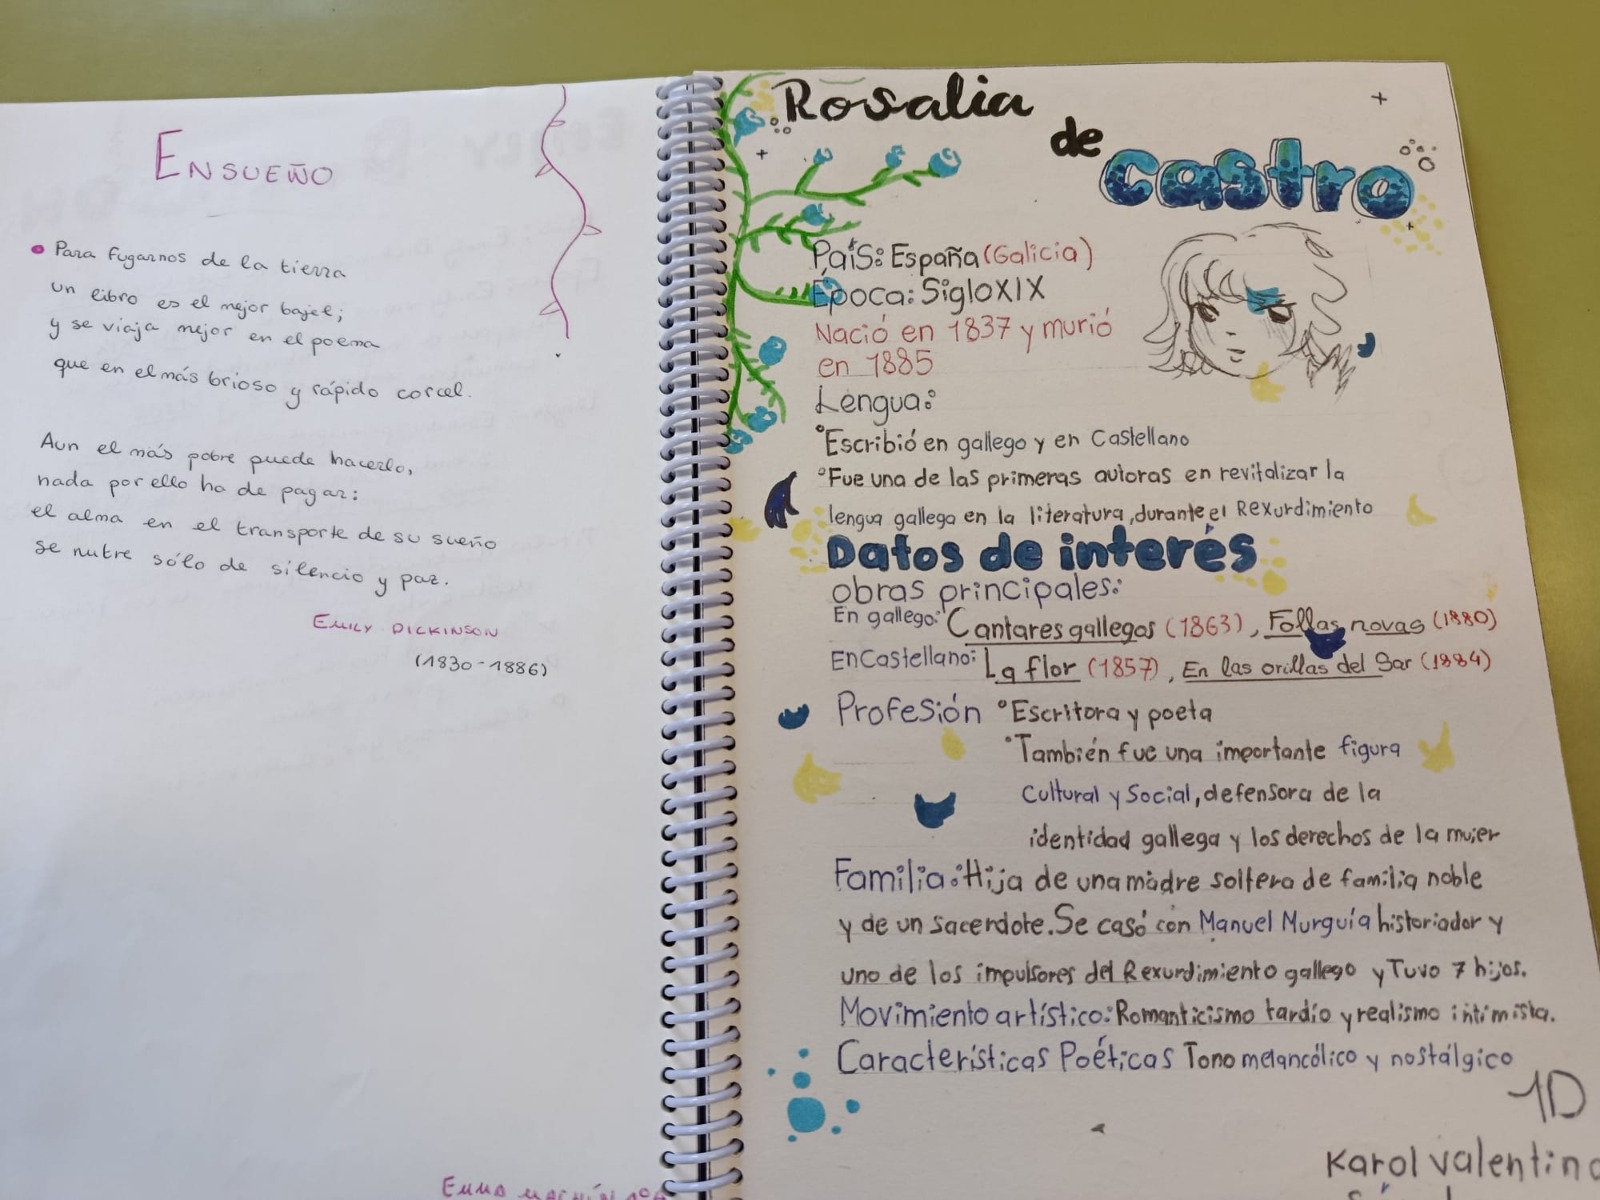 ENSUEÑO
Para fugarnos de la tierra
un libro es el mejor bajel;
y se viaja mejor en el poema
que en el más brioso y rápido corcel.
Aun el más pobre puede hacerlo,
nada por ello ha de pagar:
el alma en el transporte de su sueño
se nutre sólo de silencio y paz.
EMILY DICKINSON
(1830-1886)
EMMA
Rosalia
de
castro
País: España (Galicia)
Epoca: Siglo XIX
Nació en 1837 y murió
en 1885
Lengua:
°Escribió en gallego y en Castellano
°Fue una de las primeras autoras en revitalizar la
lengua gallega en la literatura, durante el Rexurdimiento
Datos de interés
obras principales:
En gallego: Cantares gallegos (1863), Follas novas (1880)
En Castellano: La flor (1857), En las orillas del Sar (1884)
Profesión °Escritora y poeta
°También fue una importante figura
Cultural y Social, defensora de la
identidad gallega y los derechos de la mujer
Familia: Hija de una madre soltera de familia noble
y de un sacerdote. Se casó con Manuel Murguía historiador y
uno de los impulsores del Rexurdimiento gallego y Tuvo 7 hijos.
Movimiento artístico: Romanticismo tardío y realismo intimista.
Características Poéticas Tono melancólico y nostálgico
1D
Karol Valentina